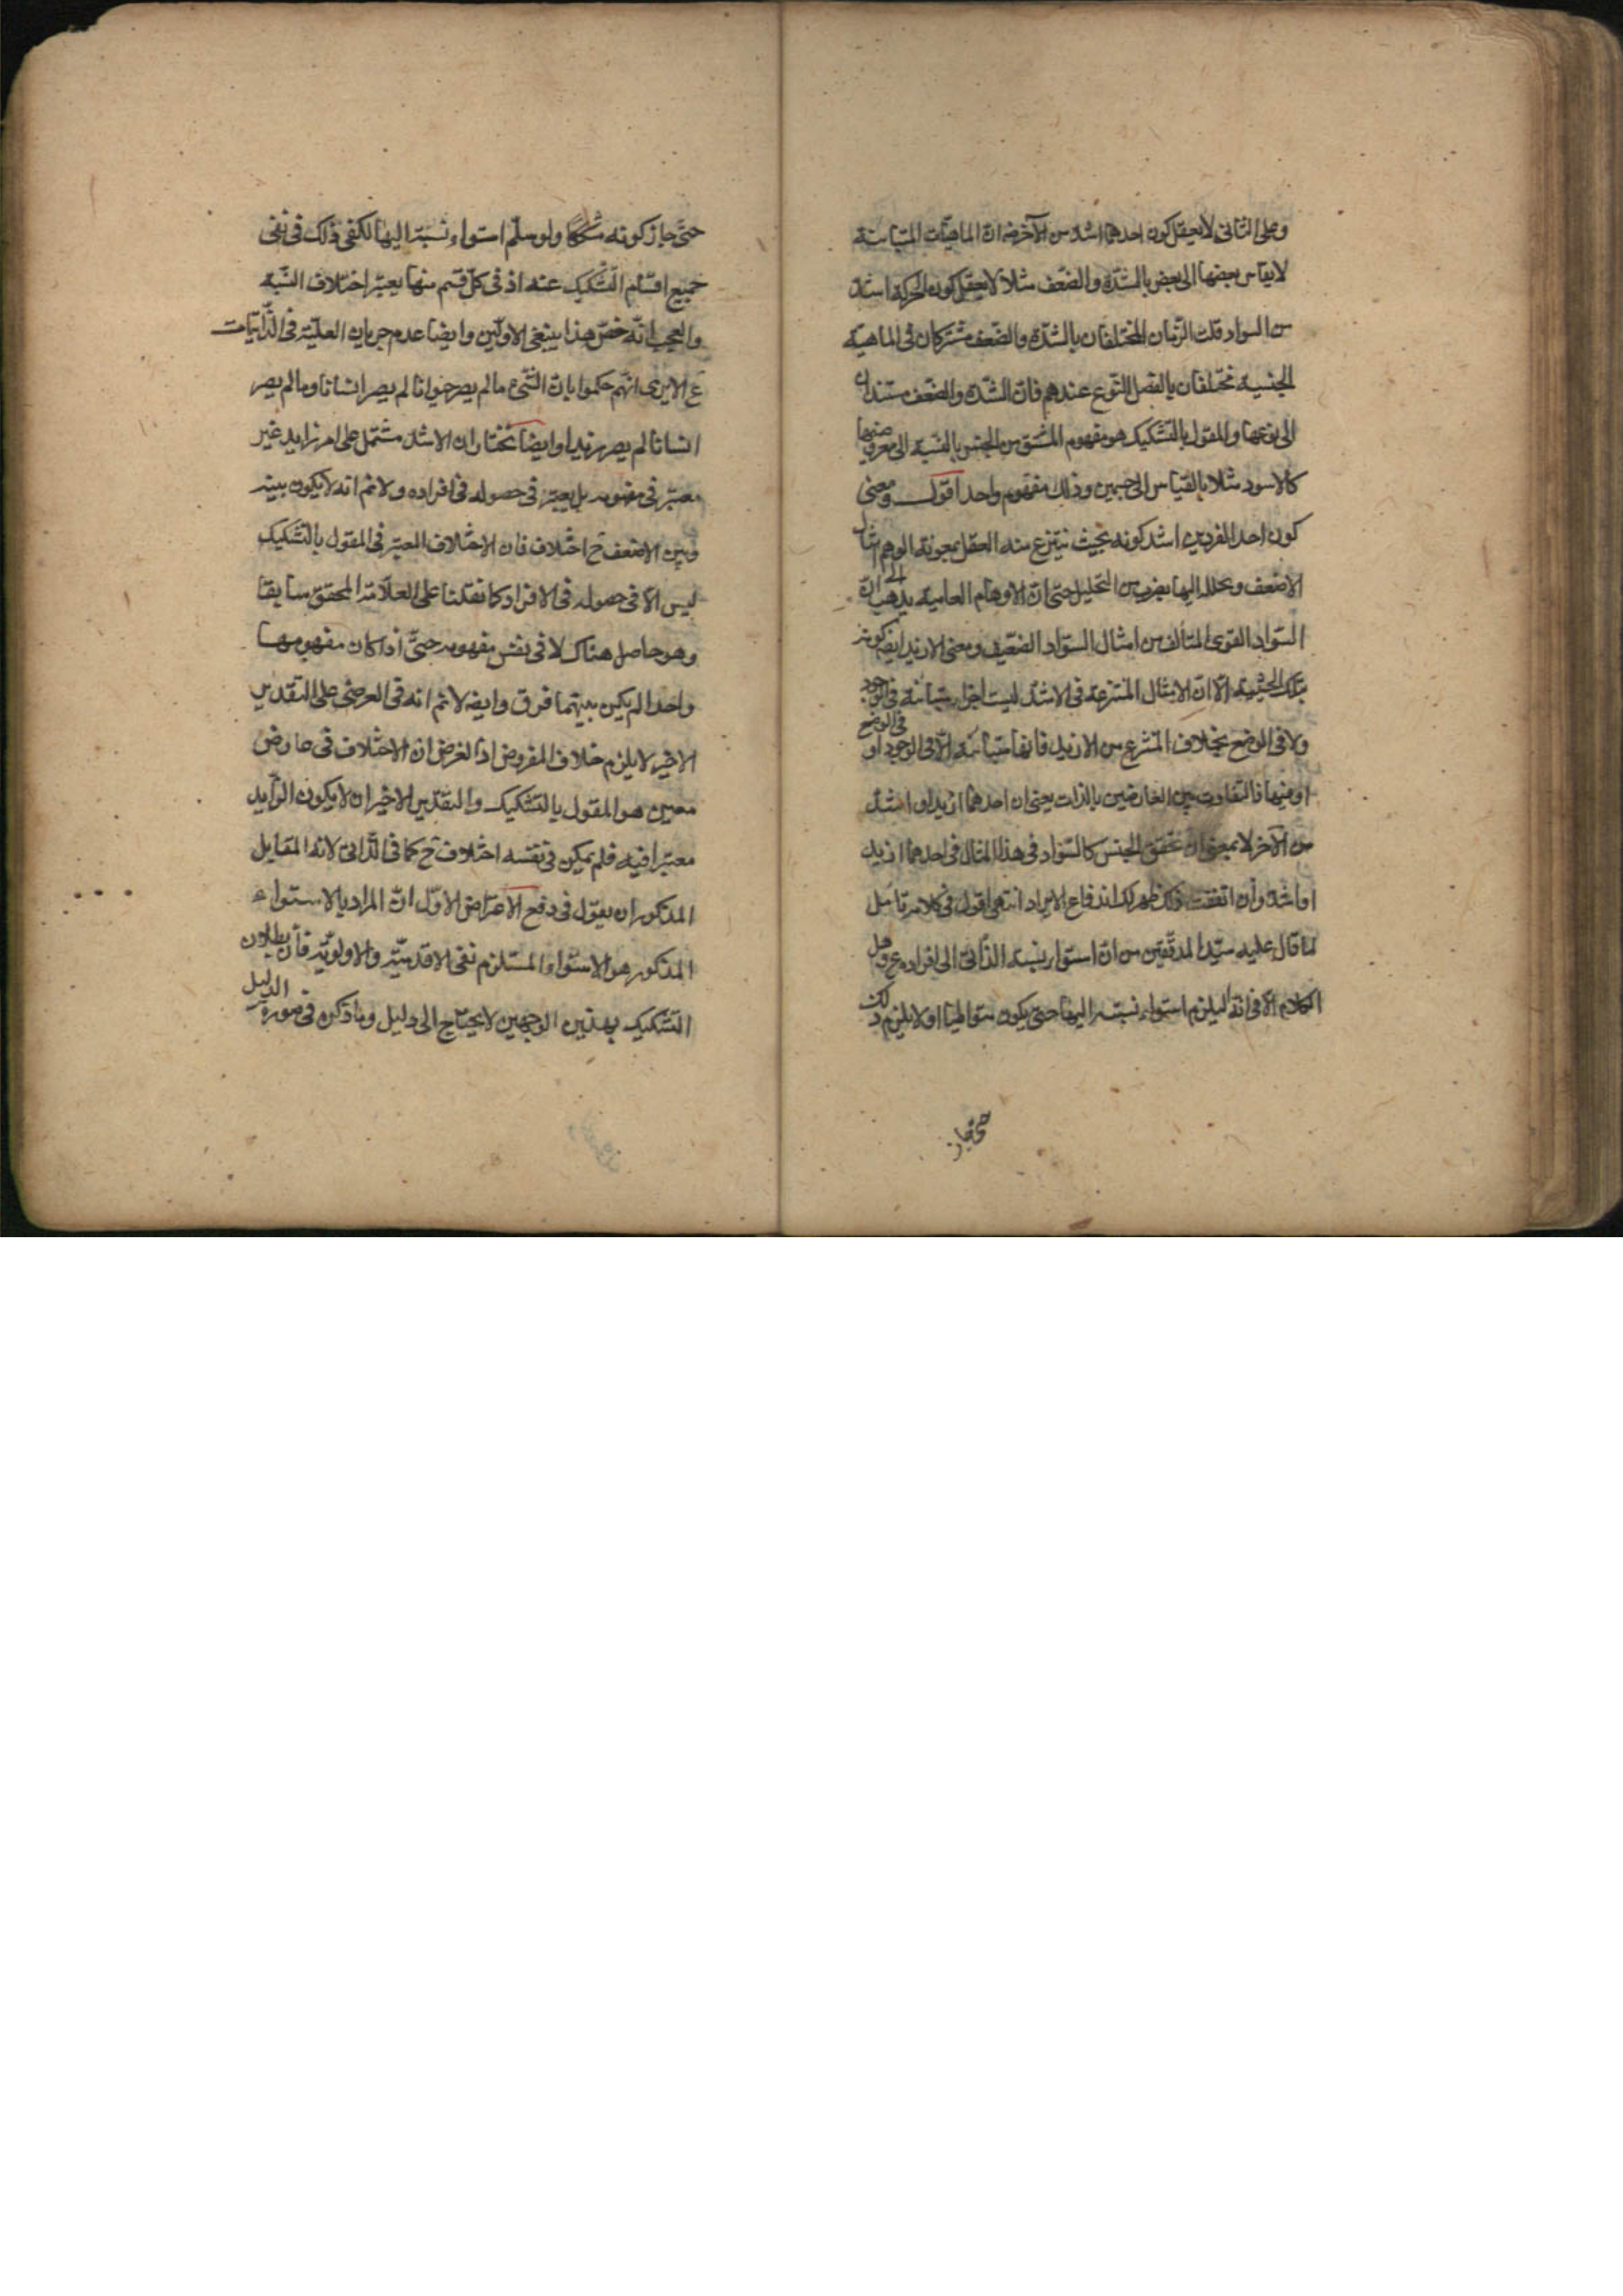 وعلى الثانى لا يعقل كون احدهما اشد من الآخر ضه ان الماهيات المتباينة
لا يقاس بعضها الى بعض بالشدّة والضّعف مثلا لا يعقل كون الحركة اشد
من السواد قلت الفردان المختلفان بالشدّة والضّعف مشتركان فى الماهية
الجنسية مختلفان بالفصل المنوّع عندهم فانّ الشدّة والضّعف مستندان
الى نوعيهما والمقول بالتشكيك هو مفهوم المشتق من الجنس بالنسبة الى معروضيهما
كالاسود مثلا بالقياس الى الجسمين وذلك مفهوم واحد اقول ومعنى
كون احد الفردين اشد كونه بحيث ينتزع منه العقل بمعونة الوهم امثال
الاضعف ويحلله اليها بضرب من التحليل حتى انّ الاوهام العامية يذهب الى انّ
السّواد القوى المتألف من امثال السّواد الضعيف ومعنى الازيد ايضا كونه
بتلك الحيثية الّا انّ الامثال المنتزعة فى الاشدّ ليست اجزاء متباينة فى الوجود
ولا فى الوضع بخلاف المنتزع من الازيد فانها متباينة امّا فى الوجود او فى الوضع
او فيهما فالتفاوت بين العارضين بالذات يعنى ان احدهما ازيد او اشدّ
من الآخر لا بمعنى ان تحقق الجنس كالسّواد فى هذا المثال فى احدهما ازيد
او اشدّ وان اتفقت ذلك ظهر لك اندفاع الايراد انتهى اقول فى كلامه تأمل
لما قال عليه سيّد المدققين من انّ استواء نسبة الذّاتى الى افراده ع وهل
الكلام الّا فى انّه ايلزم استواء نسبته اليها حتى يكون متواطيا او لا يلزم ذلك
حتى جاز
حتّى جاز كونه مشكّكا ولو سلّم استواء نسبته اليها لكفى ذلك فى نفى
جميع اقسام التّشكيك عنه اذ فى كلّ قسم منها يعتبر اختلاف النّسبة
والعجب انّه خصّ هذا بنفى الاوّلين وايضا عدم جريان العليّة فى الذّاتيات
ع الا يرى انّهم حكموا بانّ الشّىء ما لم يصر حيوانا لم يصر انسانا وما لم يصر
انسانا لم يصر زيدا وايضا نختار ان الاشدّ مشتمل على امر زايد غير
معتبر فى مفهومه بل يعتبر فى حصوله فى افراده ولا نم انه لا يكون بينه
وبين الاضعف ح اختلاف فان الاختلاف المعتبر فى المقول بالتّشكيك
ليس الّا فى حصوله فى الافراد كما نقلنا على العلّامة المحقق سابقا
وهو حاصل هناك لا فى نفس مفهومه حتّى اذا كان مفهومها
واحدا لم يكن بينهما فرق وايضه لا نم انه فى العرضى على التقدير
الاخير لا يلزم خلاف المفروض اذ الغرض ان الاختلاف فى عارض
معين هو المقول بالتشكيك والتقدير الاخير ان لا يكون الزّايد
معتبرا فيه فلم يكن فى نفسه اختلاف ح كما فى الذّاتى لانه المقابل
المذكور ان يقول فى دفع الاعتراض الاوّل انّ المراد بالاستواء
المذكور هو الاستواء المستلزم نفى الاقدميّة والاولويّة فانّ بطلان
التشكيك بهذين الوجهين لا يحتاج الى دليل وما ذكره فى صورة الدليل